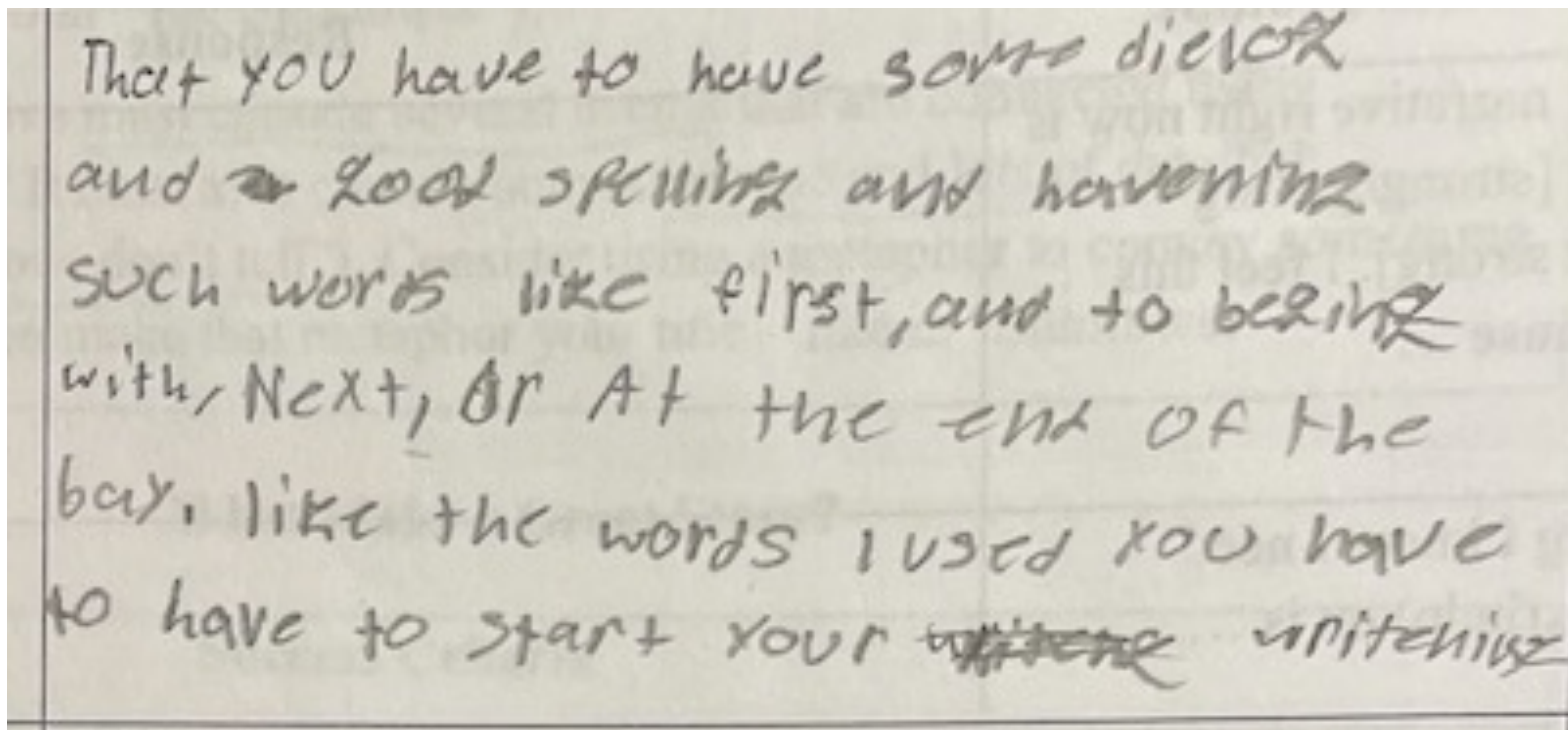 That you have to have some dielog
and good spelling and havening
such words like first, and to beging
with, Next, Or At the end of the
bay. like the words I used you have
to have to start your writening